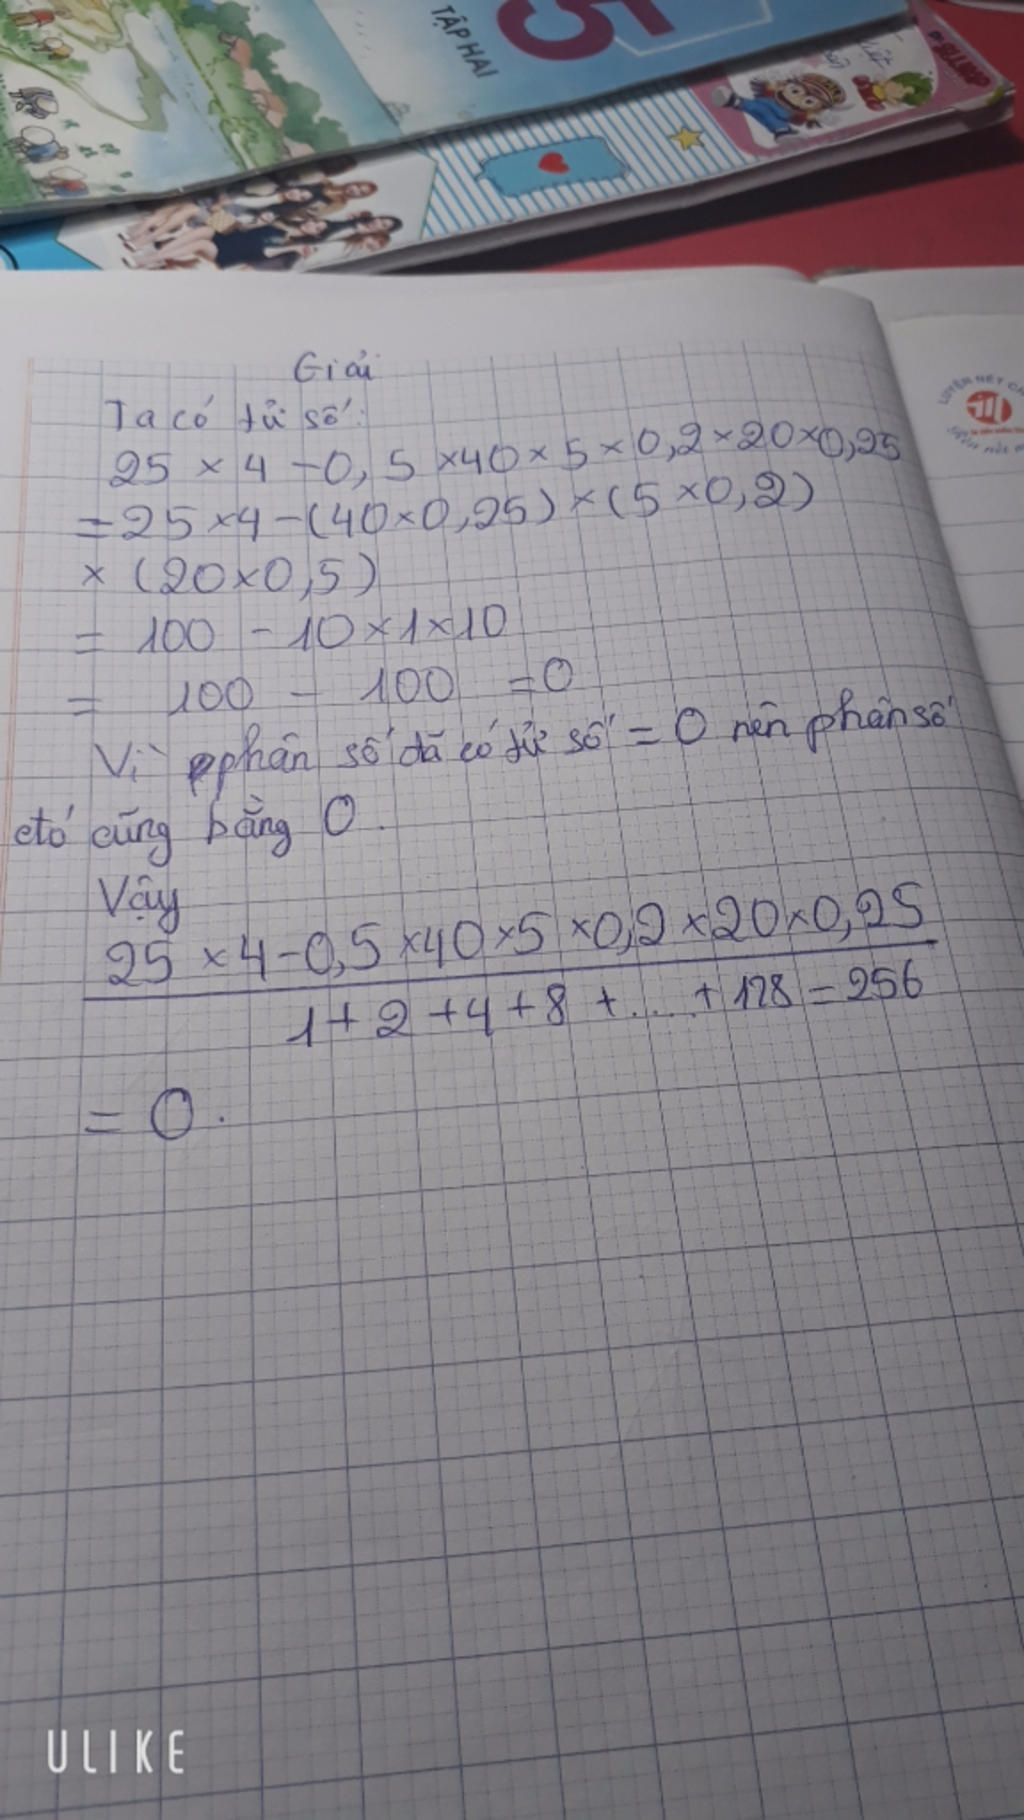 5
TẬP HAI
Giải
Ta có tử số:
25 × 4 - 0,5 × 40 × 5 × 0,2 × 20 × 0,25
= 25 × 4 - (40 × 0,25) × (5 × 0,2)
× (20 × 0,5)
= 100 - 10 × 1 × 10
= 100 - 100 = 0
Vì phân số đã có tử số = 0 nên phân số
đó cũng bằng 0.
Vậy
25 × 4 - 0,5 × 40 × 5 × 0,2 × 20 × 0,25
1 + 2 + 4 + 8 + ..... + 128 = 256
= 0.
ULIKE